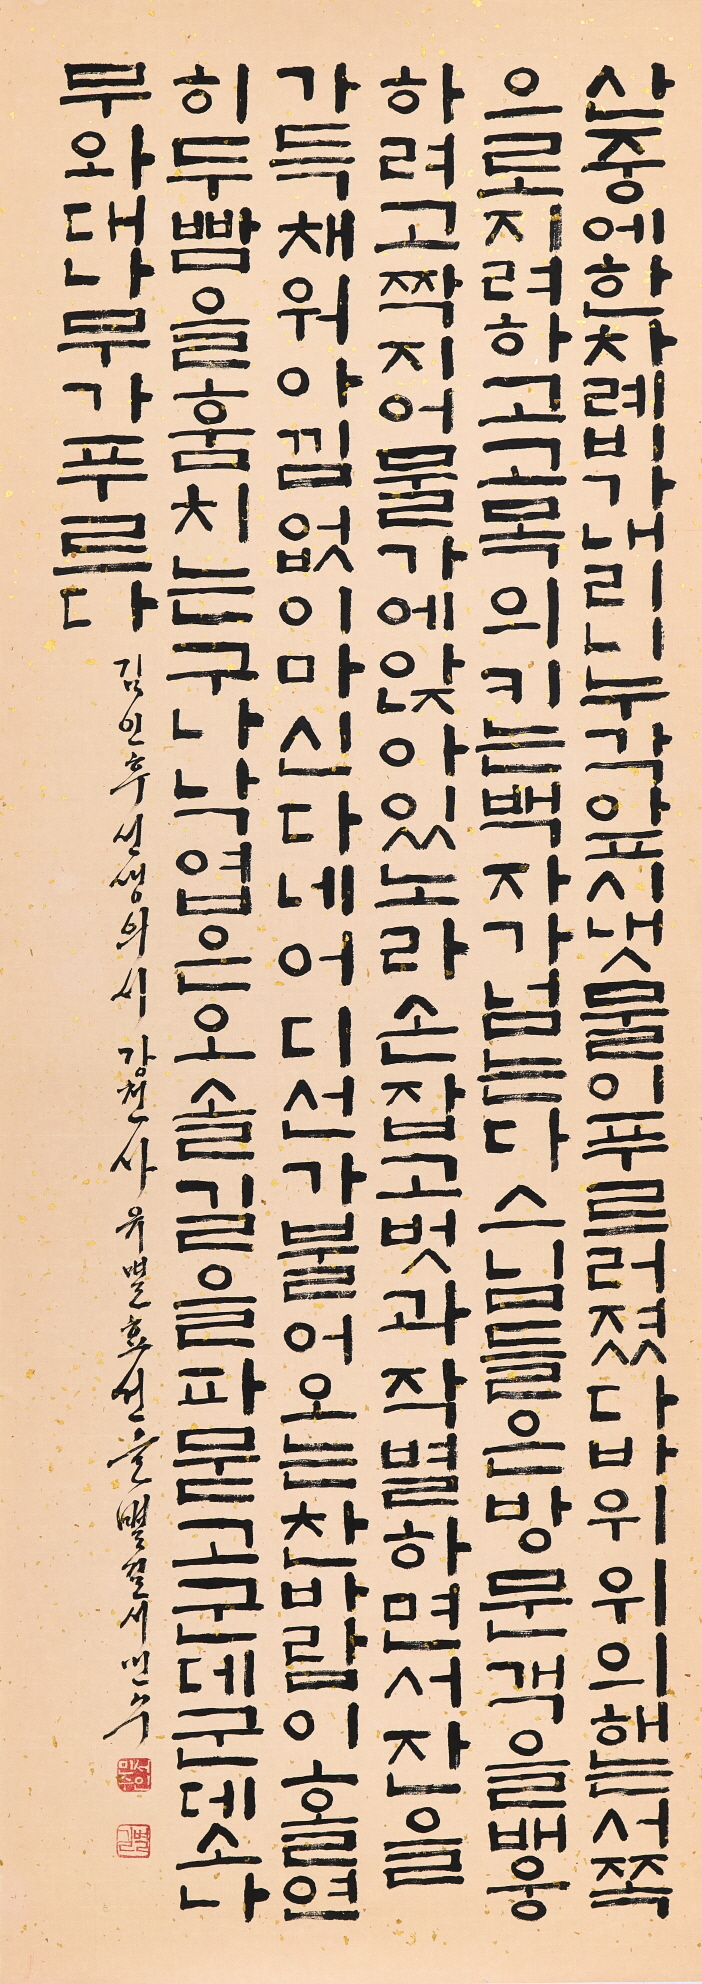 산중에한차례비가내리니누각앞시냇물이푸르러졌다바위우의해는서쪽
으로지려하고고목의키는백자가넘는다 스님들은방문객을배웅
하려고짝지어물가에앉아있노라 손잡고벗과작별하면서잔을
가득채워아낌없이마신다네어디선가불어오는찬바람이홀연
히두뺨을훔치는구나낙엽은오솔길을파묻고군데군데소나
무와대나무가푸르다
김인후선생의시 강천사 유별효선을 별길서민수
서민수인
별길